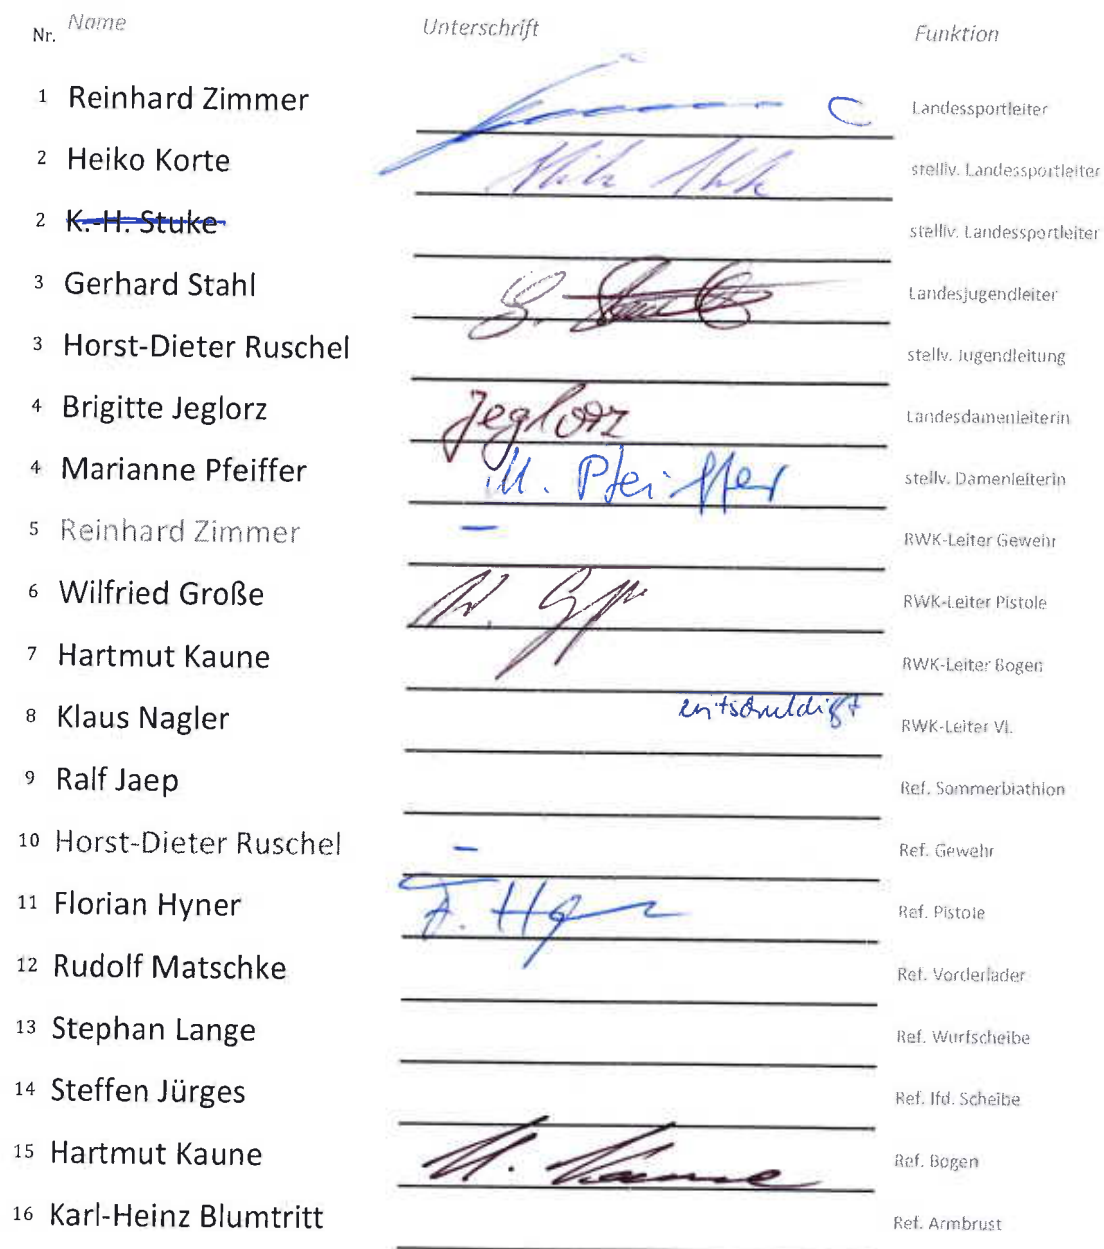 Nr. Name Unterschrift Funktion
1 Reinhard Zimmer Landessportleiter
2 Heiko Korte stellv. Landessportleiter
2 K.-H. Stuke stellv. Landessportleiter
3 Gerhard Stahl G. Stahl Landesjugendleiter
3 Horst-Dieter Ruschel stellv. Jugendleitung
4 Brigitte Jeglorz Jeglorz Landesdamenleiterin
4 Marianne Pfeiffer M. Pfeiffer stellv. Damenleiterin
5 Reinhard Zimmer – RWK-Leiter Gewehr
6 Wilfried Große RWK-Leiter Pistole
7 Hartmut Kaune RWK-Leiter Bogen
8 Klaus Nagler entschuldigt RWK-Leiter VL.
9 Ralf Jaep Ref. Sommerbiathlon
10 Horst-Dieter Ruschel – Ref. Gewehr
11 Florian Hyner F. Hyner Ref. Pistole
12 Rudolf Matschke Ref. Vorderlader
13 Stephan Lange Ref. Wurfscheibe
14 Steffen Jürges Ref. lfd. Scheibe
15 Hartmut Kaune H. Kaune Ref. Bogen
16 Karl-Heinz Blumtritt Ref. Armbrust